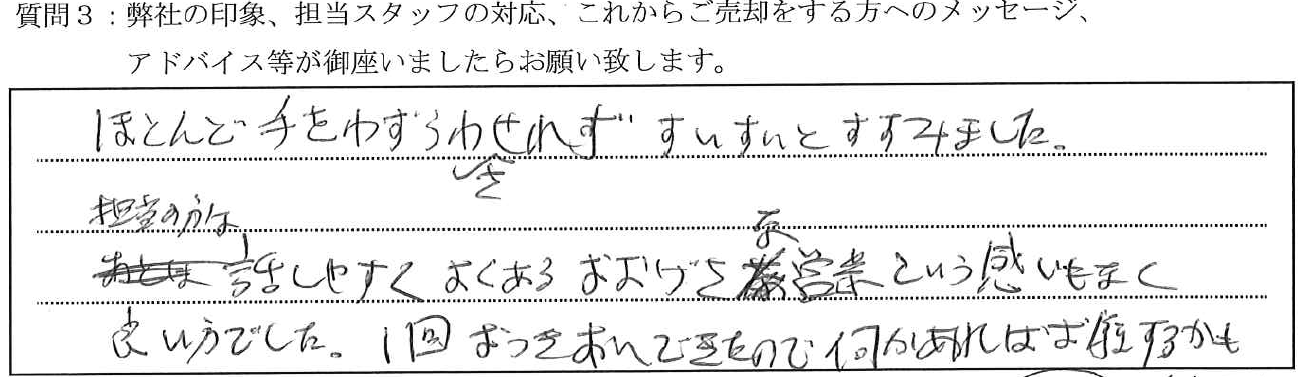 質問３：弊社の印象、担当スタッフの対応、これからご売却をする方へのメッセージ、
アドバイス等が御座いましたらお願い致します。
ほとんど手をわずらわせれず すいすいとすすみました。
さ
担当の方は
な
話しやすく よくある おおげさ 営業という感いもなく
良い方でした。1回おつきあいできたので何かあればお願するかも